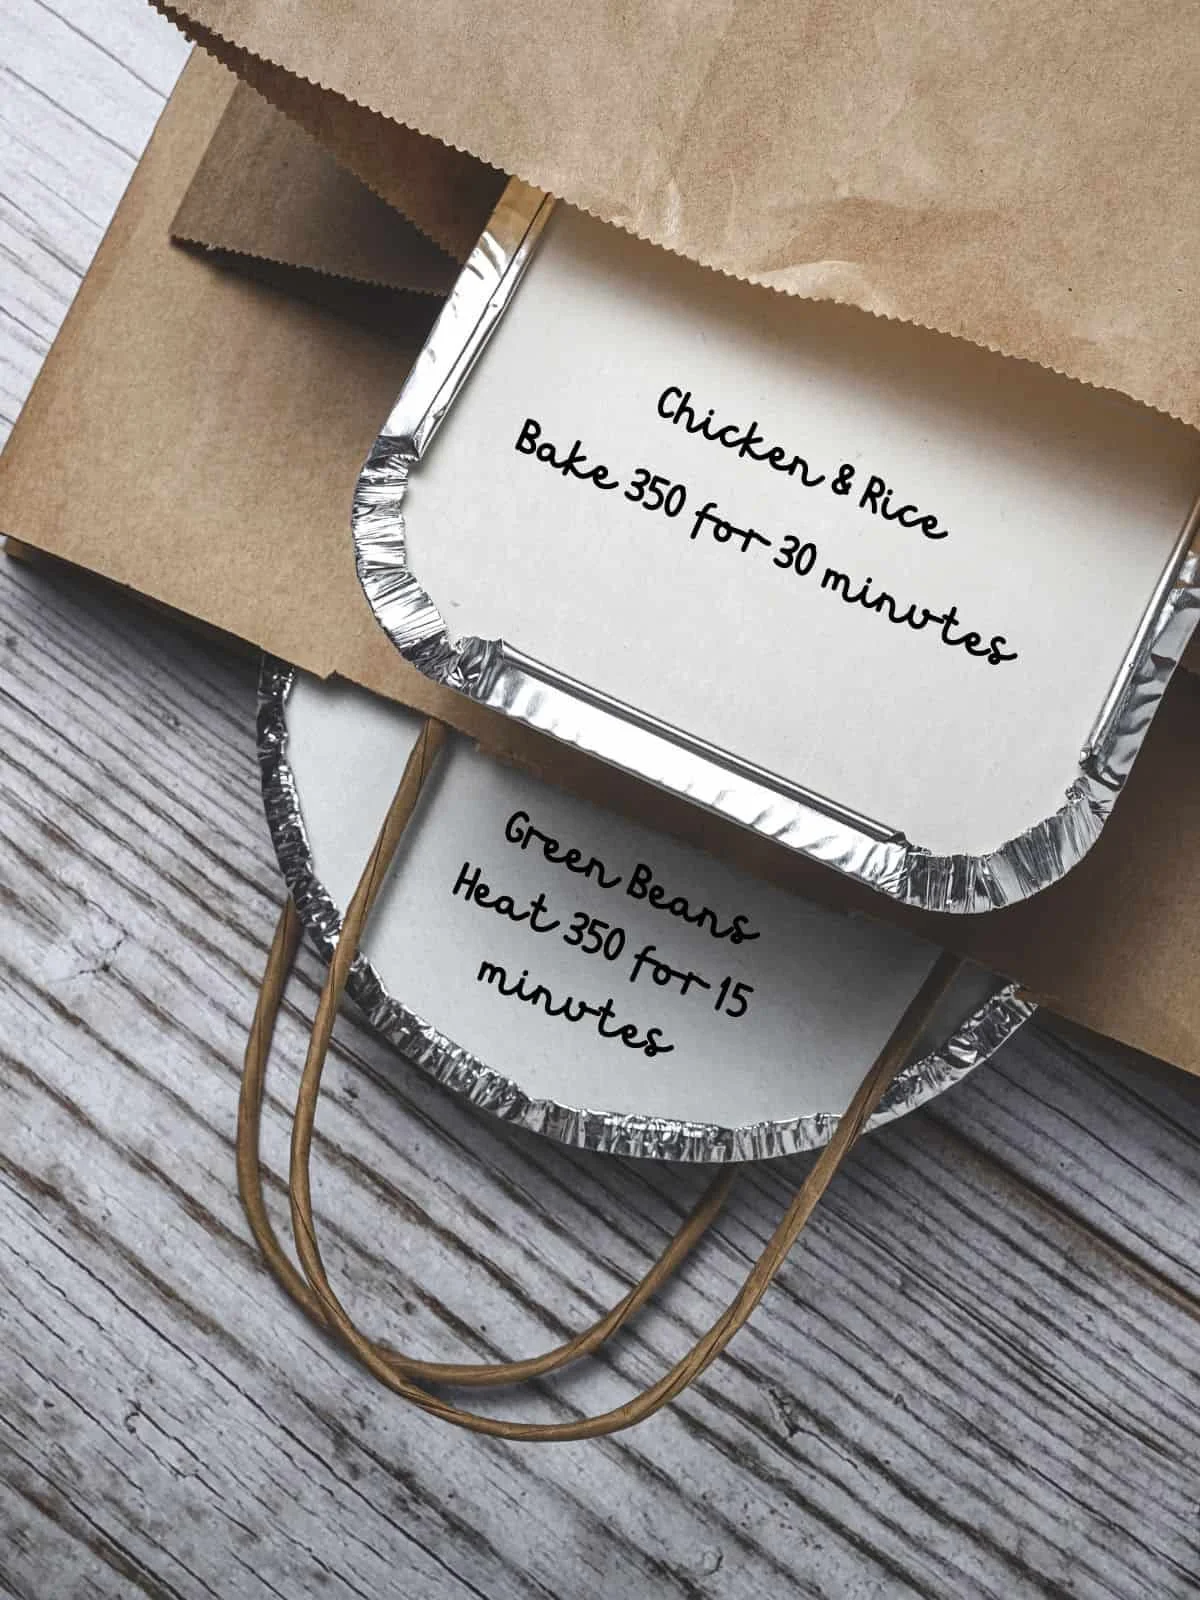 Chicken & Rice
Bake 350 for 30 minutes
Green Beans
Heat 350 for 15
minutes